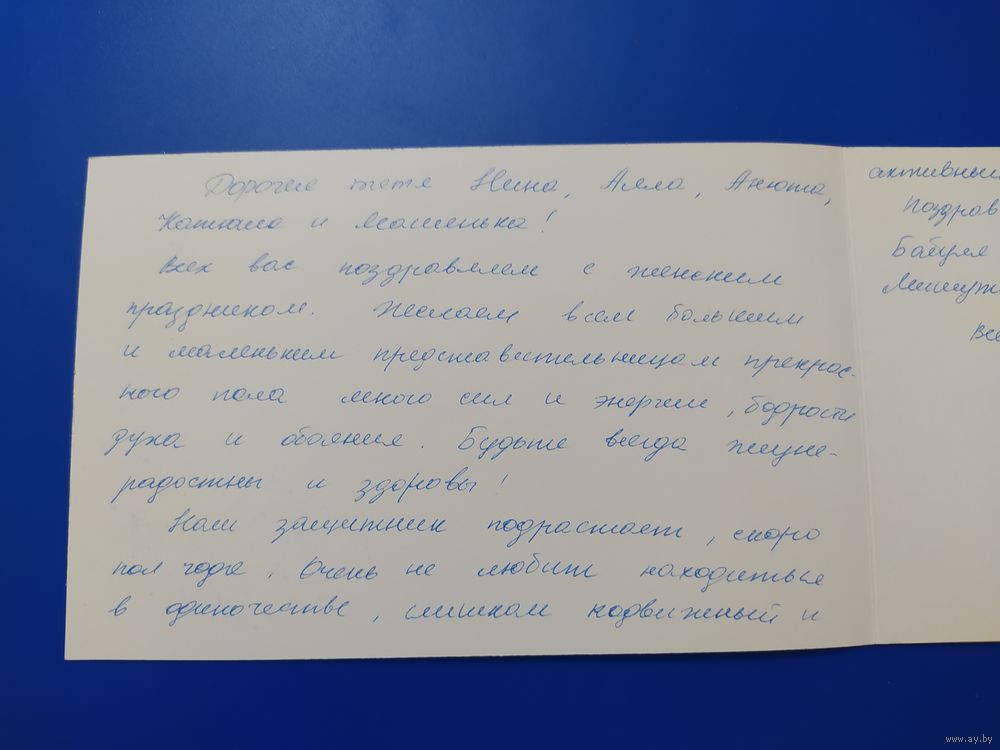 Дорогие тетя Нина, Алла, Анюта,
Катюша и Машенька!
Всех вас поздравляем с женским
праздником. Желаем всем большим
и маленьким представительницам прекрас-
ного пола много сил и энергии, бодрости
духа и обаяния. Будьте всегда жизне-
радостны и здоровы!
Наш защитник подрастает, скоро
пол года. Очень не любит находиться
в одиночестве, слишком подвижный и
активный
Поздрав
Бабуля
Мишуж
Все
www.ay.by